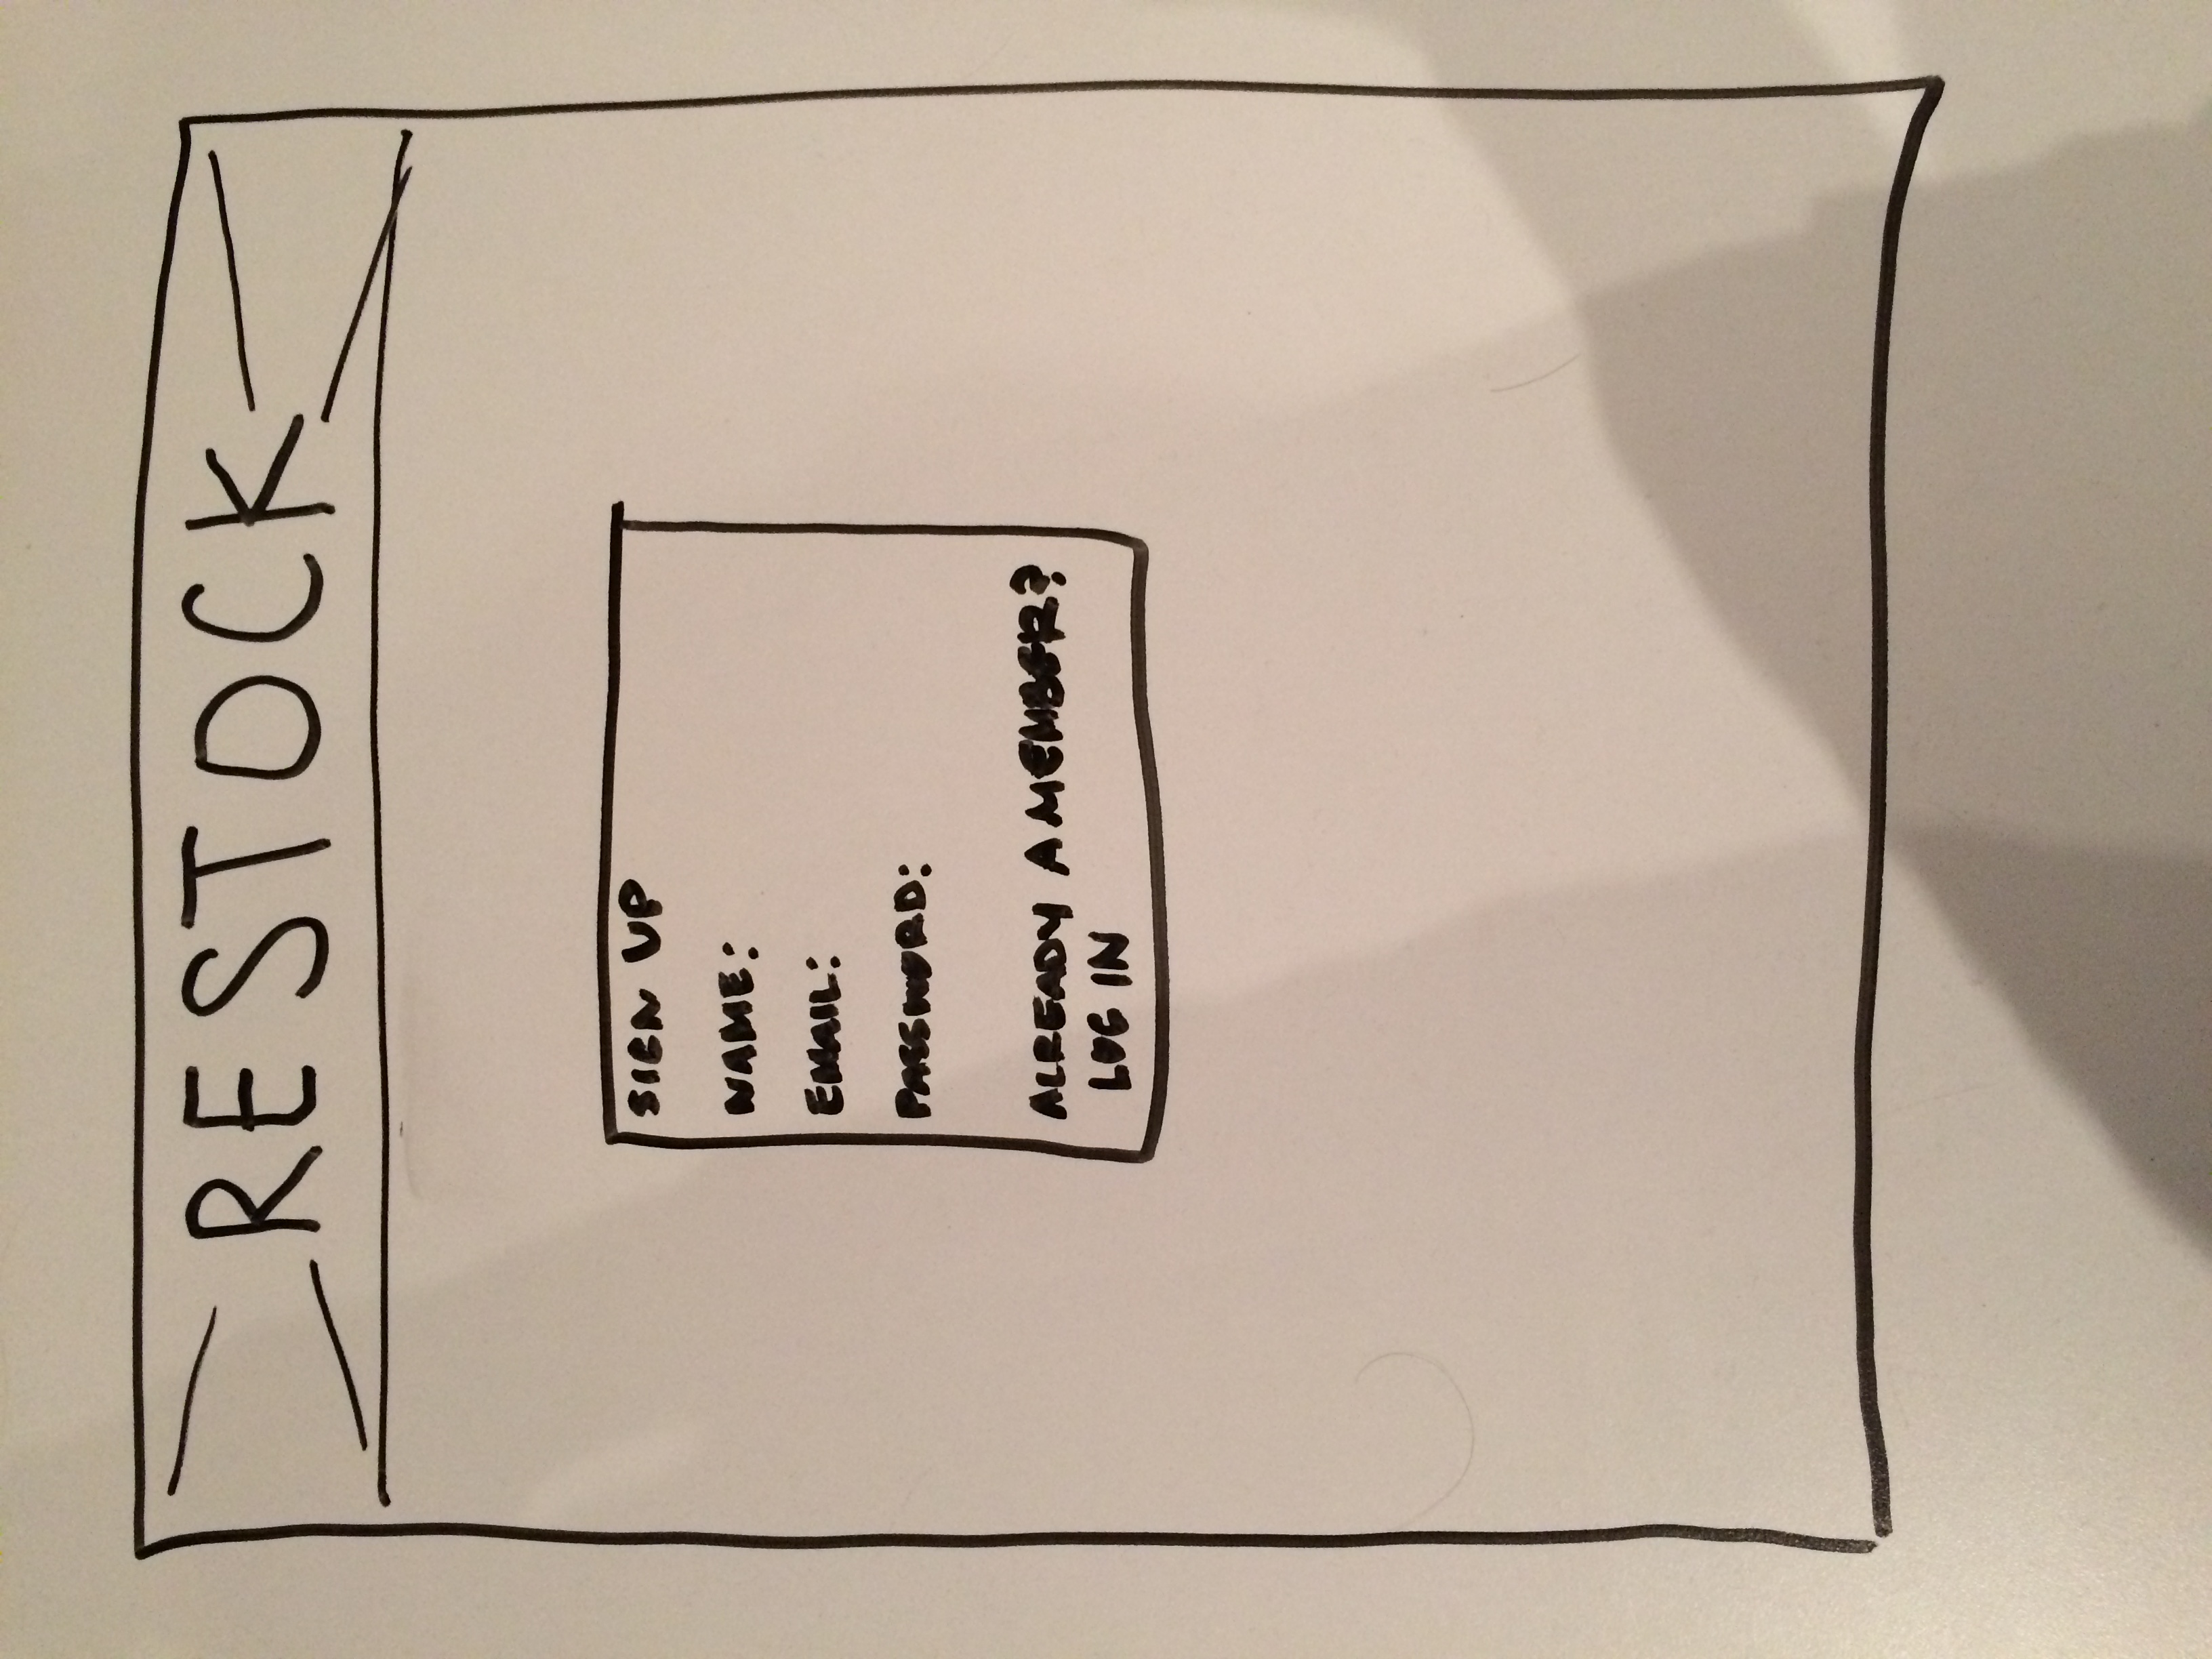 RESTOCK
SIGN UP
NAME:
EMAIL:
PASSWORD:
ALREADY A MEMBER?
LOG IN